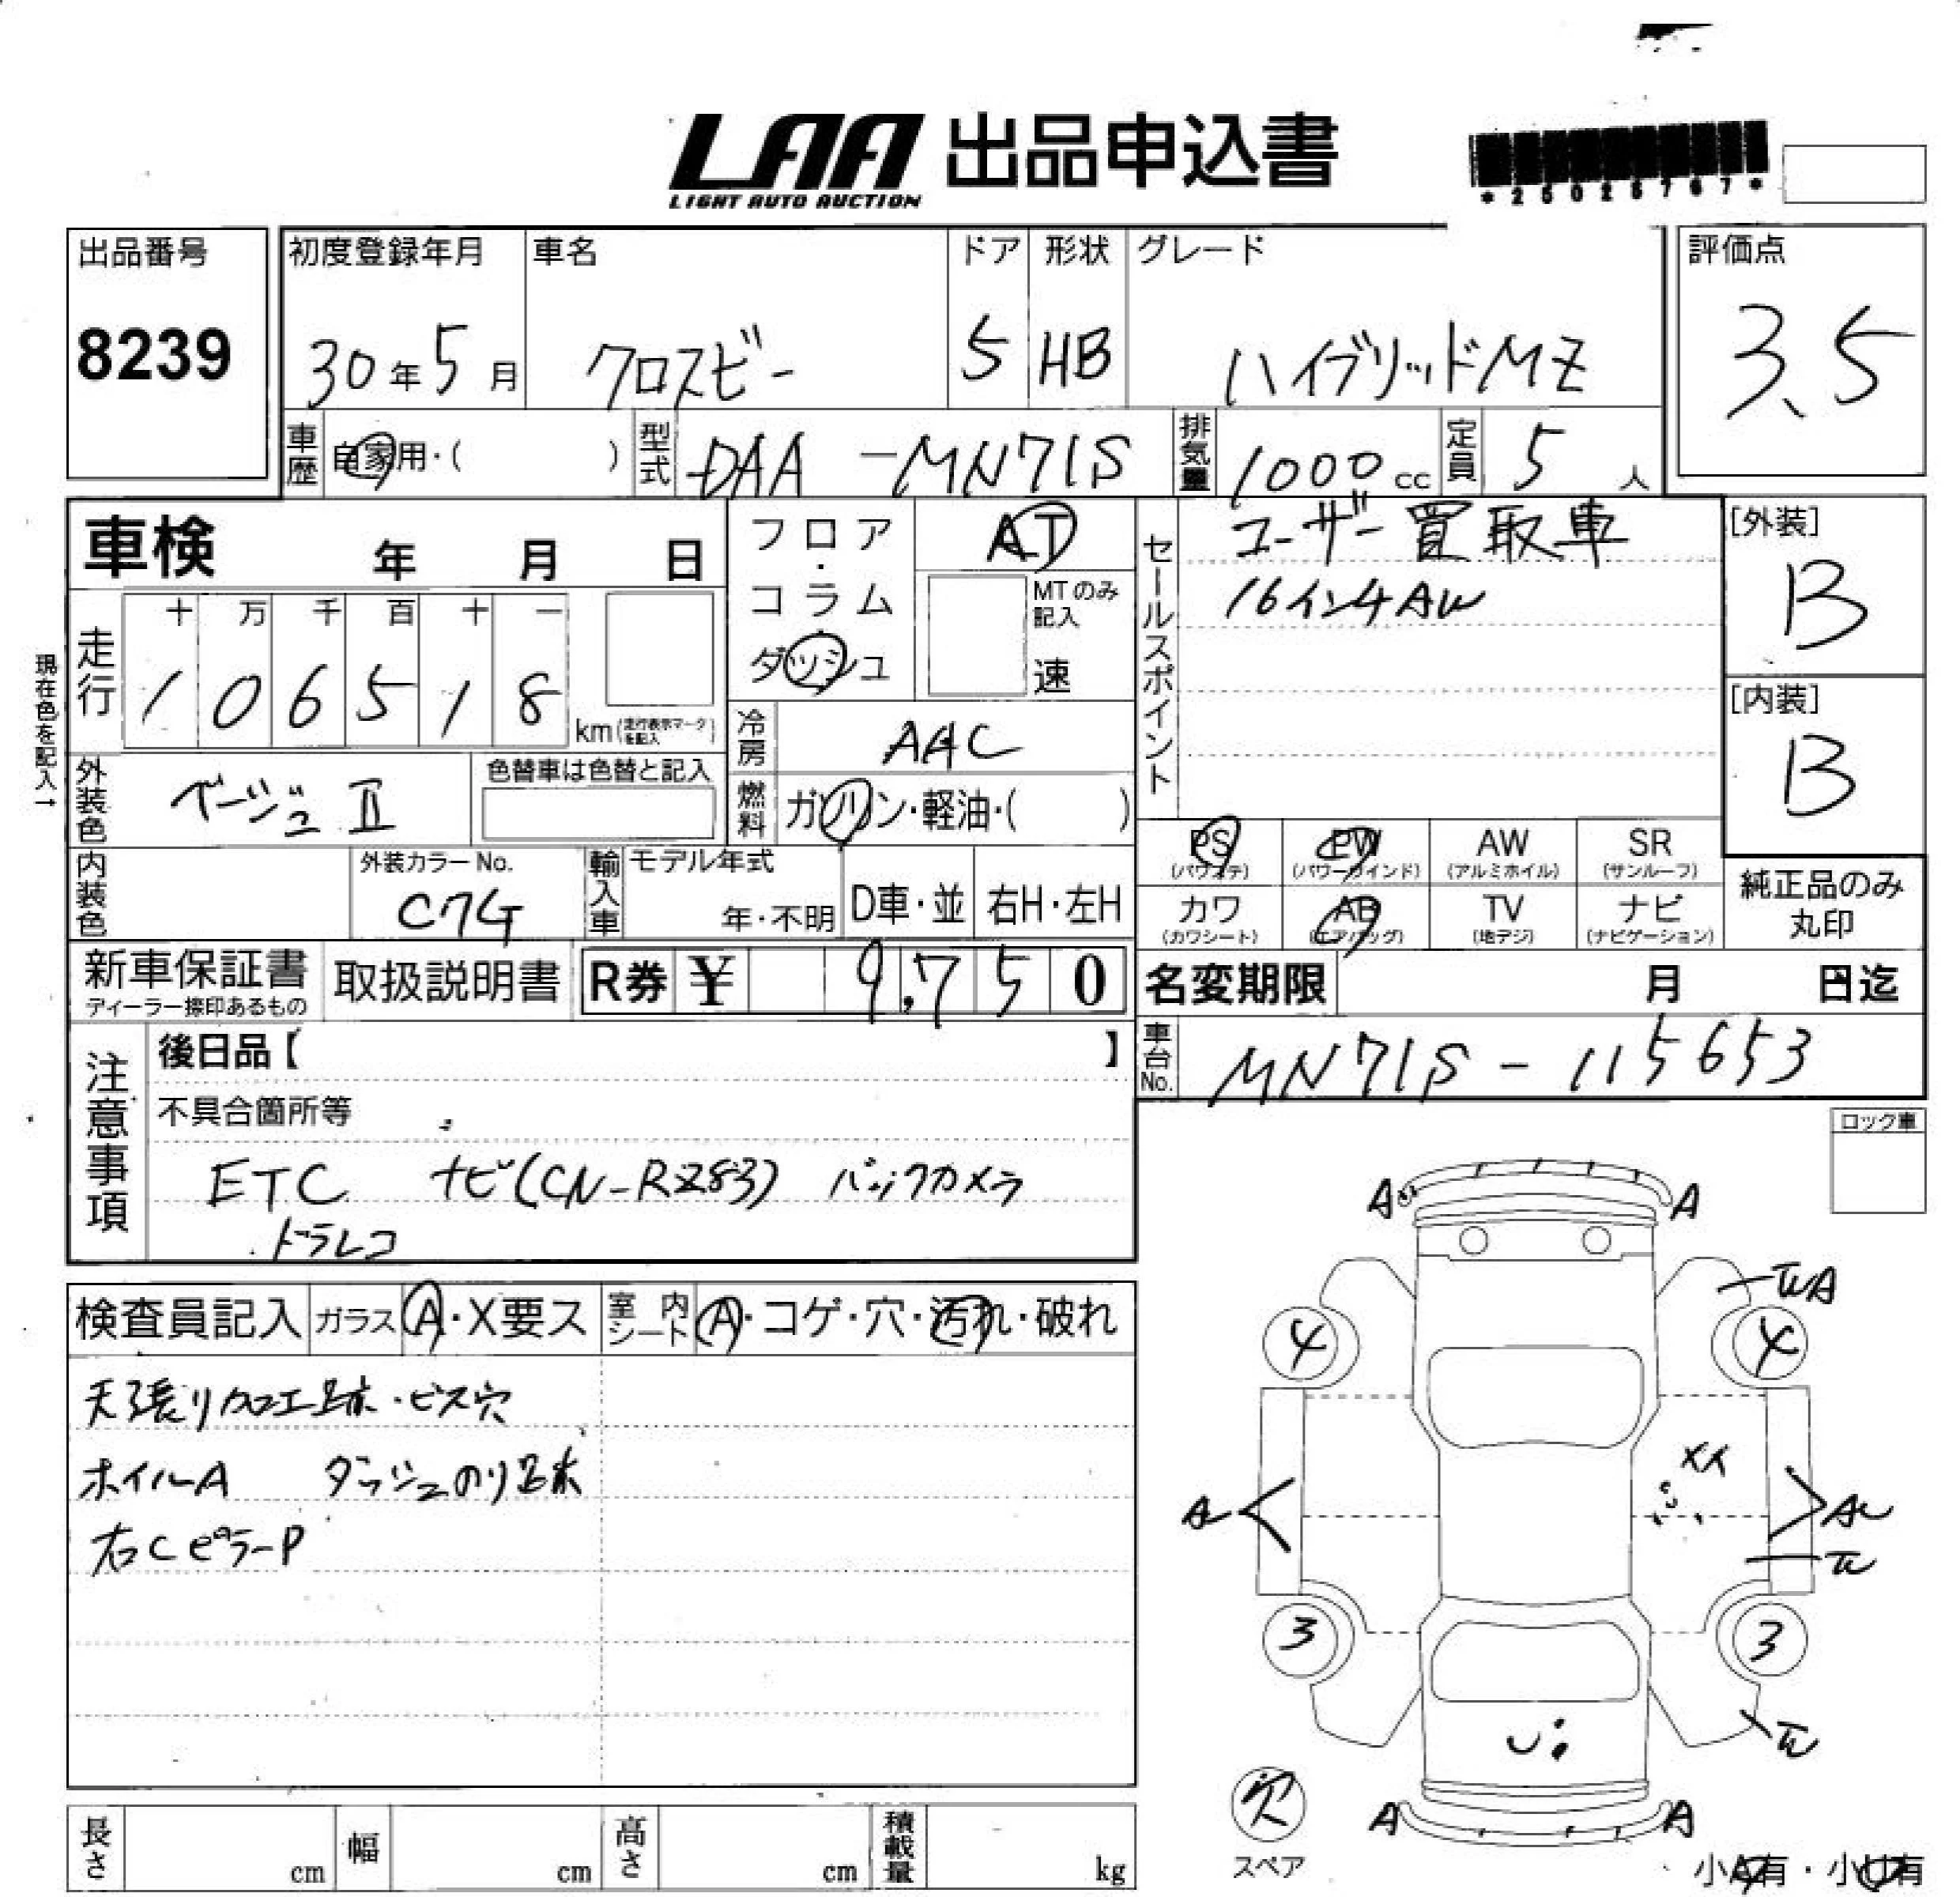 LAA 出品申込書
LIGHT AUTO AUCTION
*25026767*
出品番号
8239
初度登録年月
30年5月
車名
クロスビー
ドア
5
形状
HB
グレード
ハイブリッドMZ
評価点
3.5
車歴
自家用・( )
型式
DAA-MN71S
排気量
1000cc
定員
5人
車検 年 月 日
フロア・コラム・ダッシュ
AT
MTのみ記入
速
セールスポイント
ユーザー買取車
16インチAW
[外装]
B
[内装]
B
現在色を記入→
走行
十 万 千 百 十 一
1 0 6 5 1 8
km(走行表示マークを記入)
冷房
AAC
外装色
ベージュII
色替車は色替と記入
燃料
ガソリン・軽油・( )
PS
(パワステ)
PW
(パワーウインド)
AW
(アルミホイル)
SR
(サンルーフ)
純正品のみ丸印
カワ
(カワシート)
AB
(エアバッグ)
TV
(地デジ)
ナビ
(ナビゲーション)
内装色
外装カラーNo.
C7G
輸入車
モデル年式
年・不明
D車・並
右H・左H
新車保証書
ディーラー捺印あるもの
取扱説明書
R券 ¥ 9,750
名変期限 月 日迄
車台No.
MN71S-115653
注意事項
後日品【 】
不具合箇所等
ETC ナビ(CN-RZ83) バックカメラ
ドラレコ
ロック車
検査員記入
ガラス
A・X要ス
室内シート
A・コゲ・穴・汚れ・破れ
天張り加工跡・ビス穴
ホイルA ダッシュのり跡
右CピラーP
A
A
4
4
A
3
3
欠
スペア
A
A
小A有・小U有
長さ cm
幅 cm
高さ cm
積載量 kg